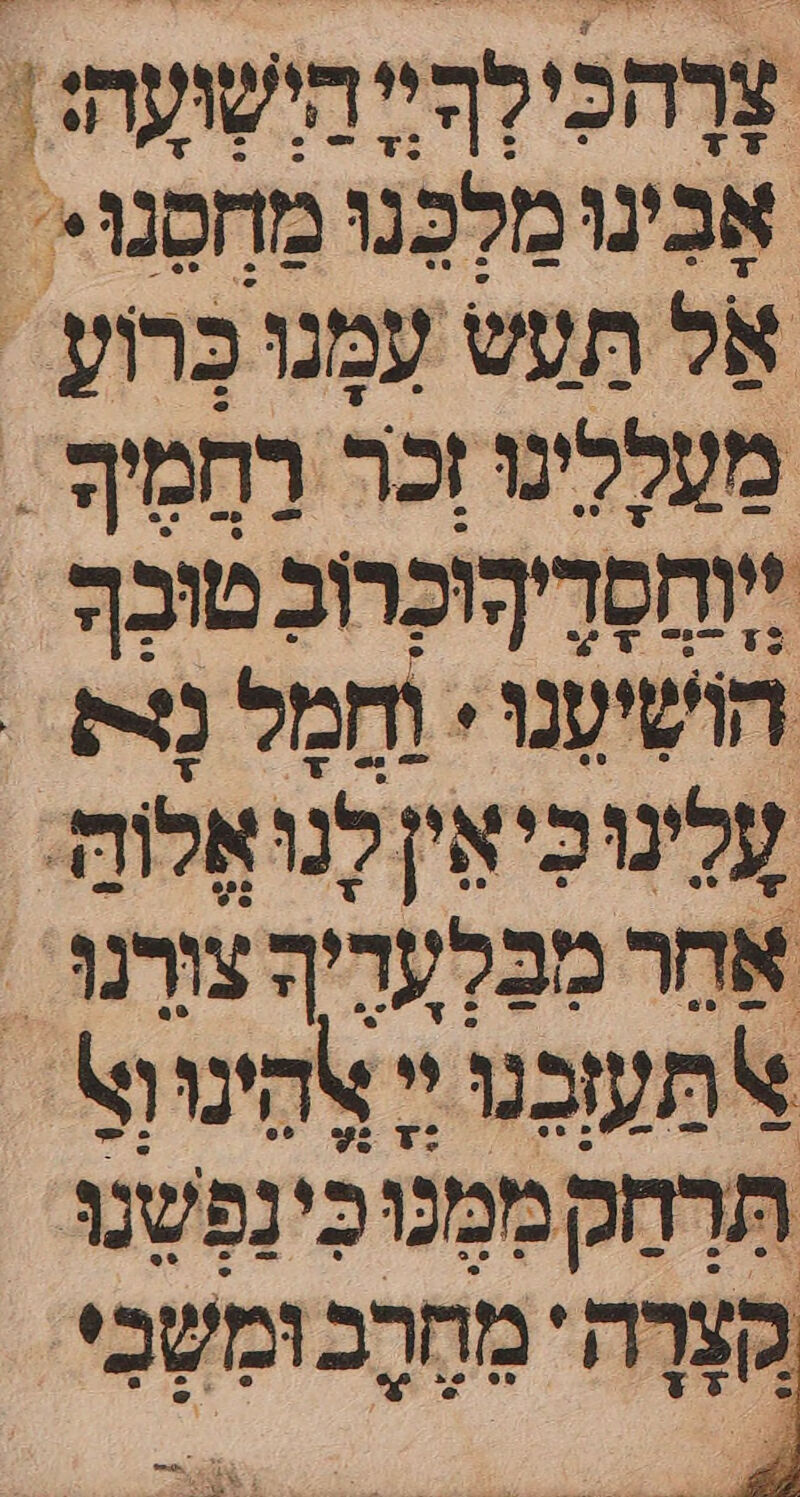 צָרָה כִּי לְךָ יְיָ הַיְשׁוּעָה׃
אָבִינוּ מַלְכֵּנוּ מַחְסֵנוּ ·
אַל תַּעַשׂ עִמָּנוּ כְּרוֹעַ
מַעַלָלֵינוּ זְכֹר רַחֲמֶיךָ
יְיָ וַחֲסָדֶיךָ וּכְרוֹב טוּבְךָ
הוֹשִׁיעֵנוּ · וַחֲמָל נָא
עָלֵינוּ כִּי אֵין לָנוּ אֱלוֹהַּ
אַחֵר מִבַּלְעָדֶיךָ צוּרֵנוּ
אַל תַּעַזְבֵנוּ יְיָ אֱלֹהֵינוּ וְאַל
תִּרְחַק מִמֶּנּוּ כִּי נַפְשֵׁנוּ
קְצָרָה · מֵחֶרֶב וּמִשְּׁבִי